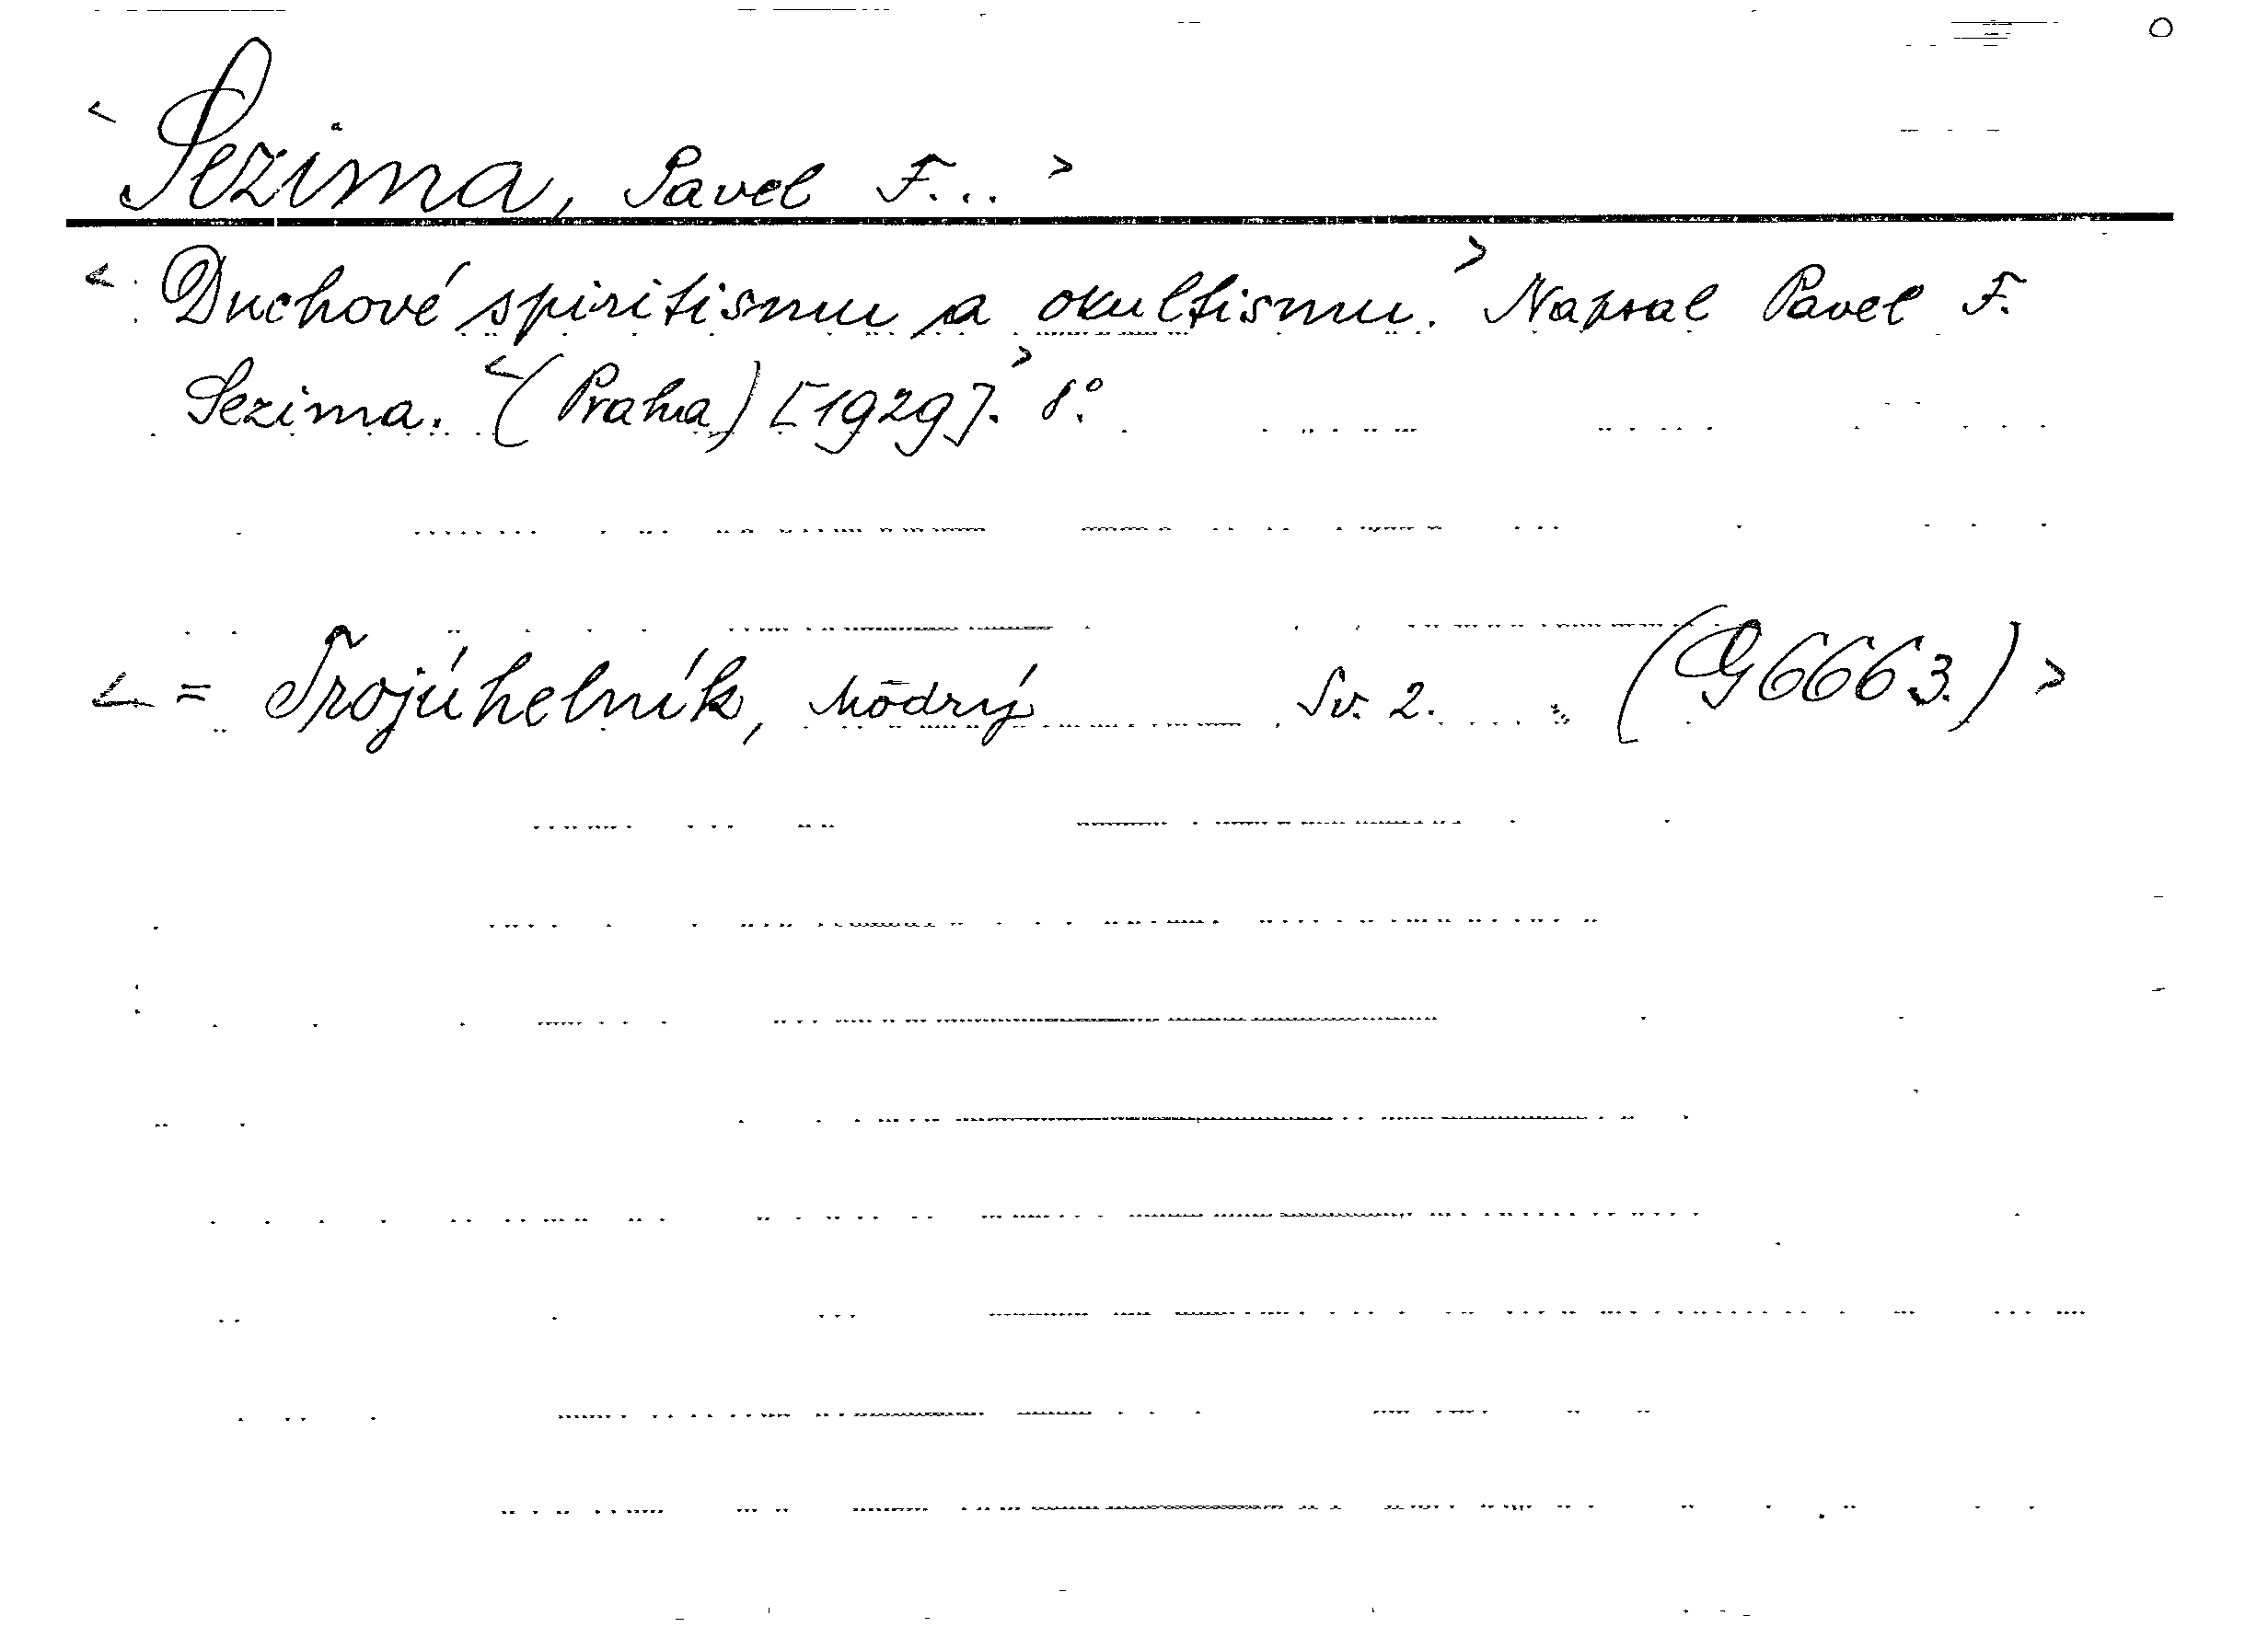 < Sezima, Pavel F... >
< Duchové spiritismu a okultismu. > Napsal Pavel F.
Sezima. < (Praha) [1929]. > 8°.
< = Trojúhelník, Módrý Sv. 2. (G 6663.) >